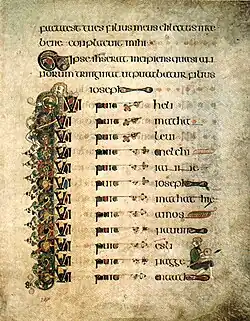 facta est tu es filius meus dilectus in te
bene conplacuit mihi
Et ipse ihs erat incipiens quasi an
norum triginta ut putabatur filius
ioseph
QUI fuit heli
QUI fuit mathat
QUI fuit levi
QUI fuit melchi
QUI fuit
QUI fuit ioseph
QUI fuit mathathie
QUI fuit amos
QUI fuit nauum
QUI fuit esli
QUI fuit nagge
QUI fuit maath